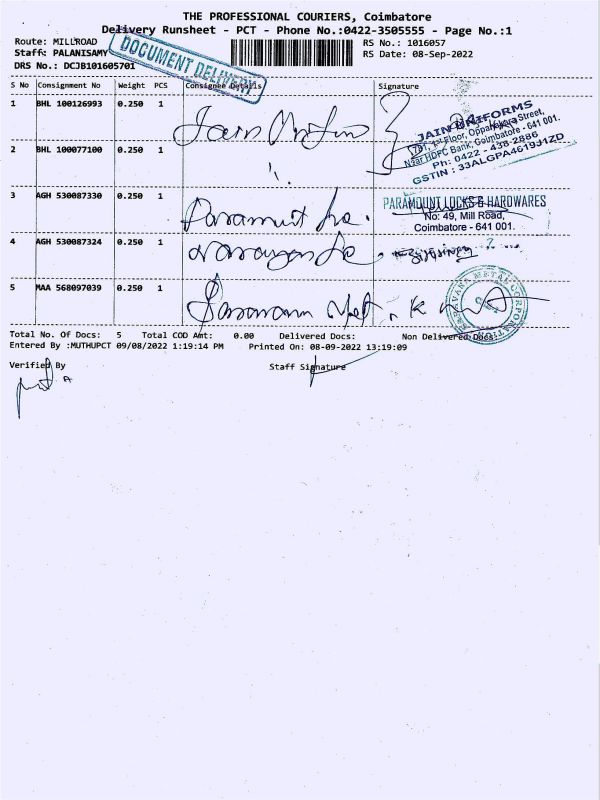 THE PROFESSIONAL COURIERS, Coimbatore
Delivery Runsheet - PCT - Phone No.:0422-3505555 - Page No.:1
Route: MILLROAD
RS No.: 1016057
Staff: PALANISAMY
RS Date: 08-Sep-2022
DRS No.: DCJB101605701
DOCUMENT DELIVERY
S No Consignment No Weight PCS Consignee Details Signature
1 BHL 100126993 0.250 1
JAIN UNIFORMS
791, 1st Floor, Oppanakara Street,
Near HDFC Bank, Coimbatore - 641 001.
Ph: 0422 - 438 2886
GSTIN : 33ALGPA4619J1ZD
2 BHL 100077100 0.250 1
3 AGH 530087330 0.250 1
PARAMOUNT LOCKS & HARDWARES
No: 49, Mill Road,
Coimbatore - 641 001.
4 AGH 530087324 0.250 1
5 MAA 568097039 0.250 1
Total No. Of Docs: 5 Total COD Amt: 0.00 Delivered Docs: Non Delivered Docs:
Entered By :MUTHUPCT 09/08/2022 1:19:14 PM Printed On: 08-09-2022 13:19:09
Verified By Staff Signature